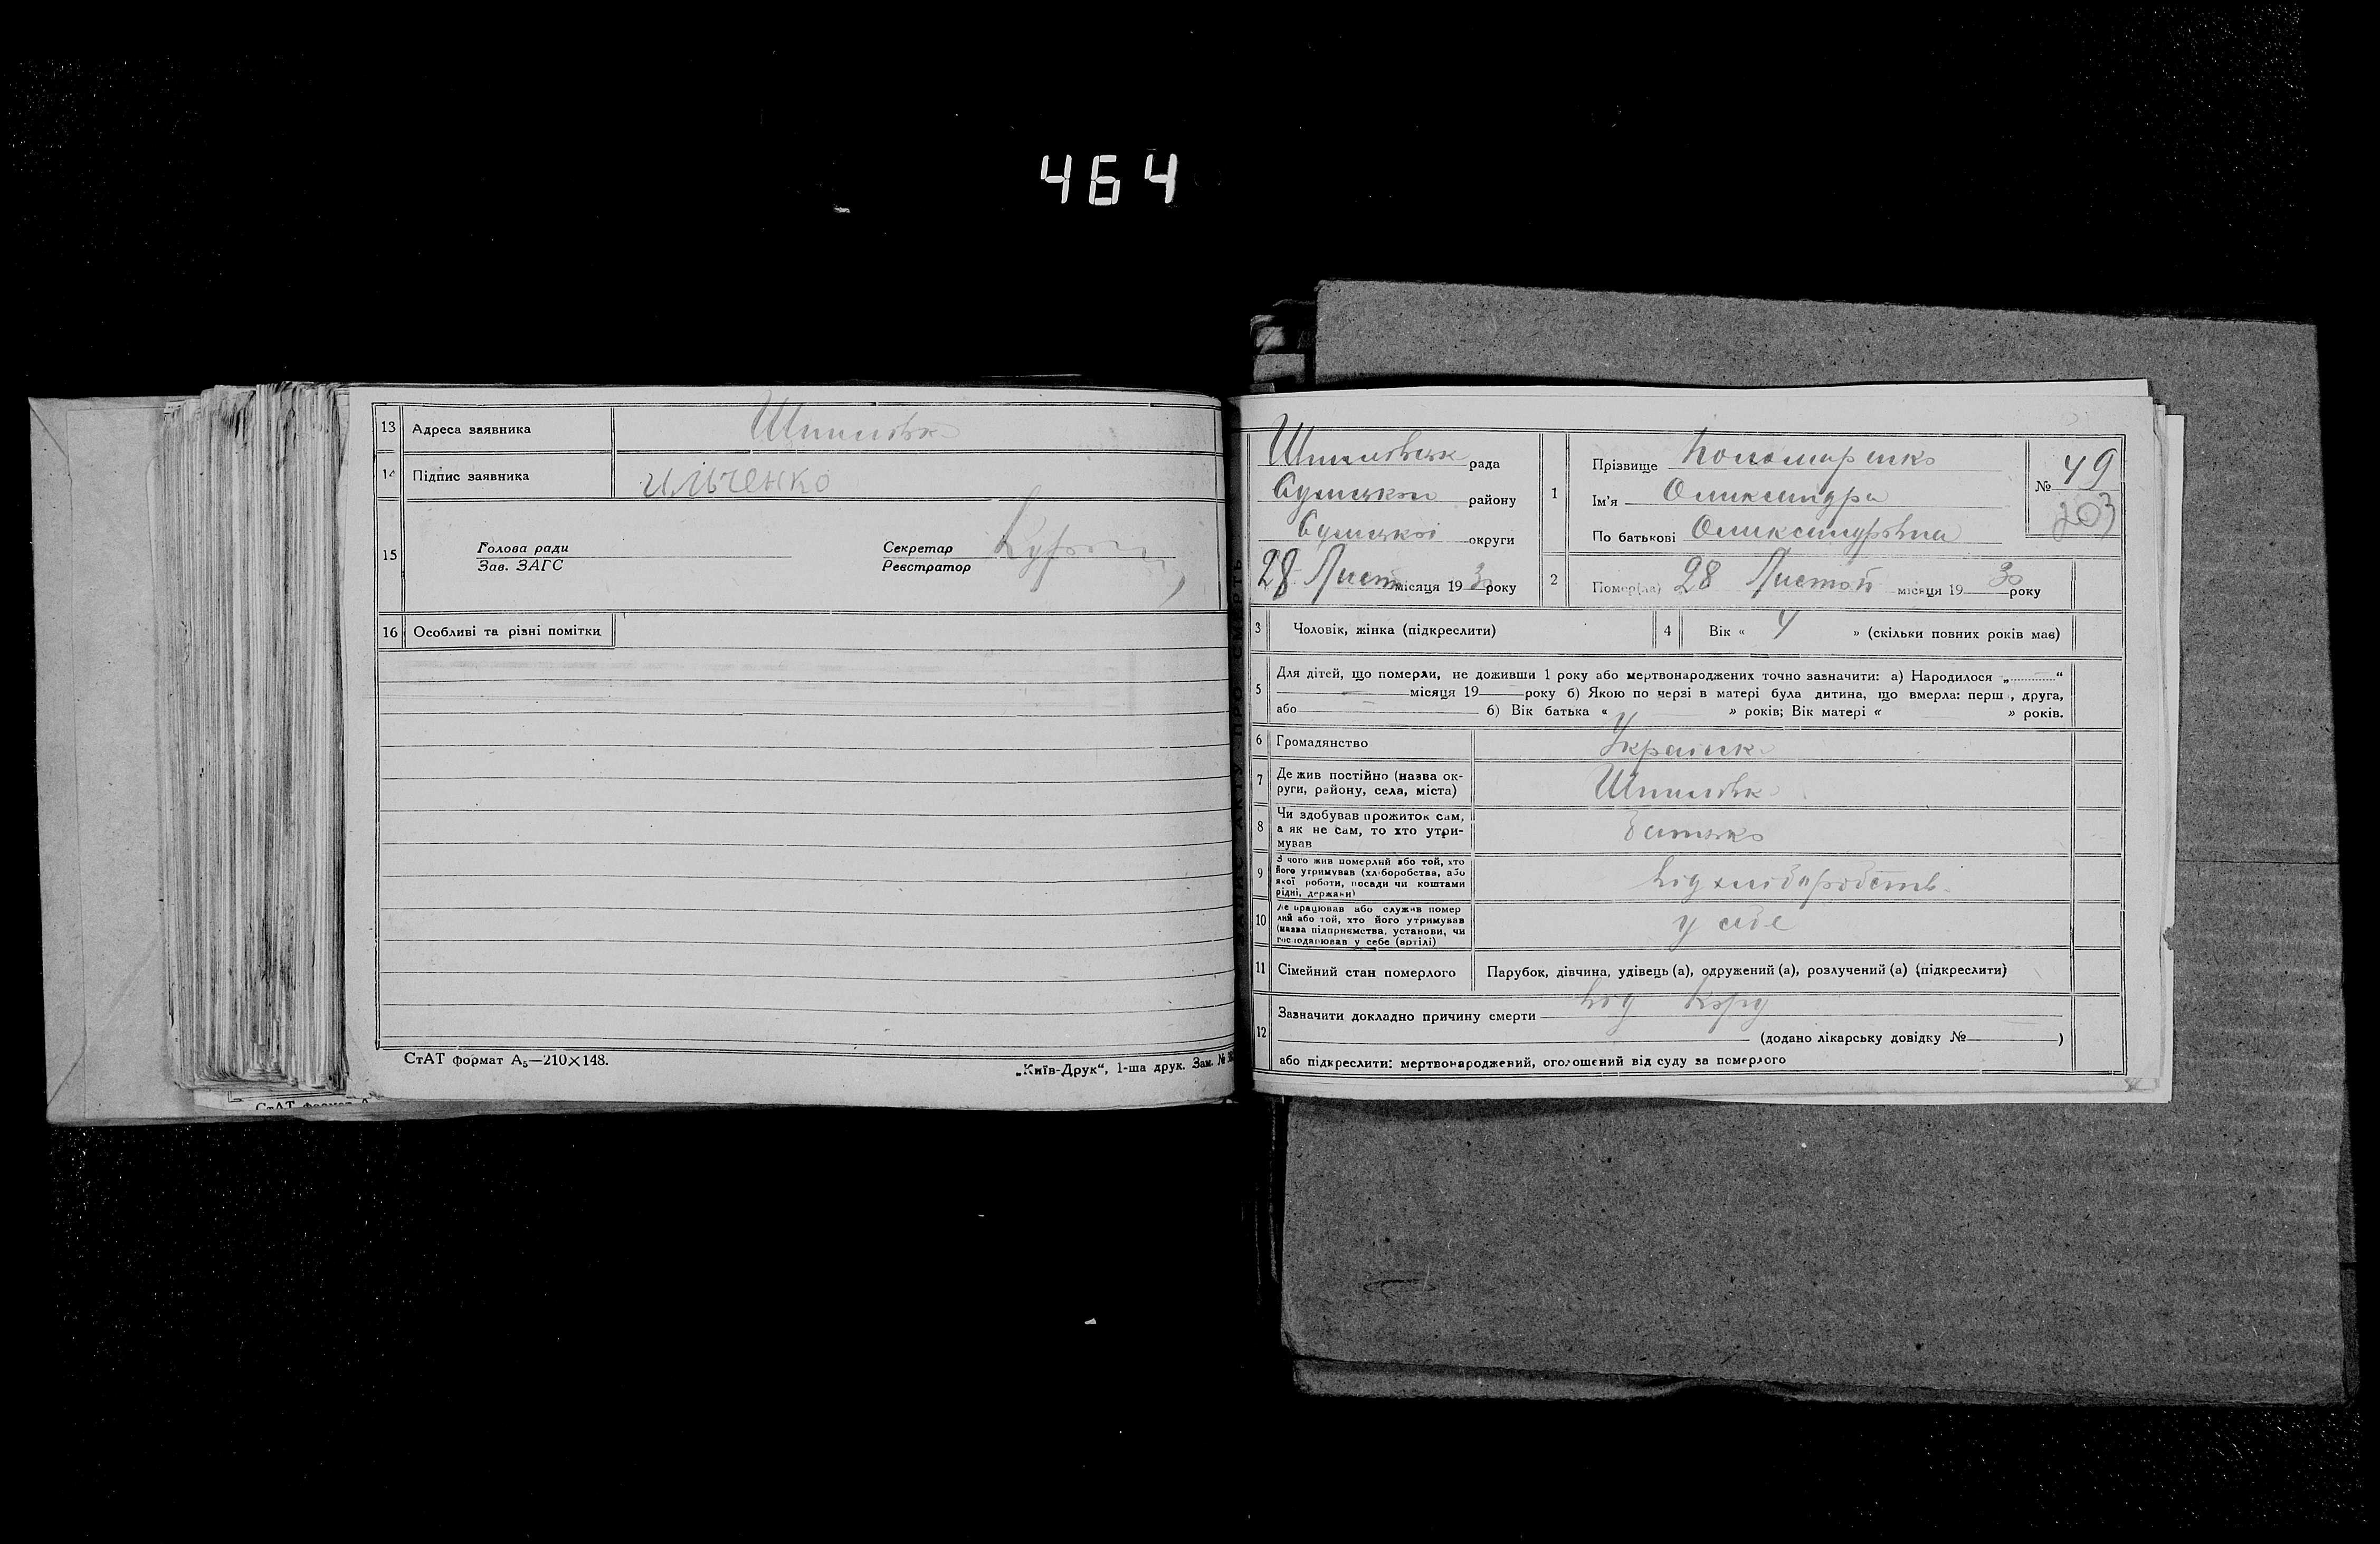 464
13 Адреса заявника Шпилівка
14 Підпис заявника ильченко
15 Голова ради
Зав. ЗАГС
Секретар
Реєстратор
16 Особливі та різні помітки
СтАТ формат А₅—210×148.
„Київ-Друк“, 1-ша друк. Зам. №
СтАТ формат А
ЗАПИС АКТУ ПРО СМЕРТЬ
Шпилівськ рада
Сумського району
Сумської округи
28 Лист місяця 1930 року
1 Прізвище Пономаренко
Ім'я Олександра
По батькові Олександрівна
№ 49
203
2 Помер(ла) 28 Листоп місяця 1930 року
3 Чоловік, жінка (підкреслити)
4 Вік « 4 » (скільки повних років має)
5 Для дітей, що померли, не доживши 1 року або мертвонароджених точно зазначити: а) Народилося „............“
місяця 19 року б) Якою по черзі в матері була дитина, що вмерла: перш , друга,
або 6) Вік батька « » років; Вік матері « » років.
6 Громадянство Українк
7 Де жив постійно (назва ок-
руги, району, села, міста) Шпилівк
8 Чи здобував прожиток сам,
а як не сам, то хто утри-
мував Батько
9 З чого жив померлий або той, хто
його утримував (хліборобства, або
якої роботи, посади чи коштами
рідні, держави) від хліборобств
10 Де працював або служив помер
лий або той, хто його утримував
(назва підприємства, установи, чи
господарював у себе (артілі) у себе
11 Сімейний стан померлого Парубок, дівчина, удівець (а), одружений (а), розлучений (а) (підкреслити)
12 Зазначити докладно причину смерти від Кору
(додано лікарську довідку № )
або підкреслити: мертвонароджений, оголошений від суду за померлого